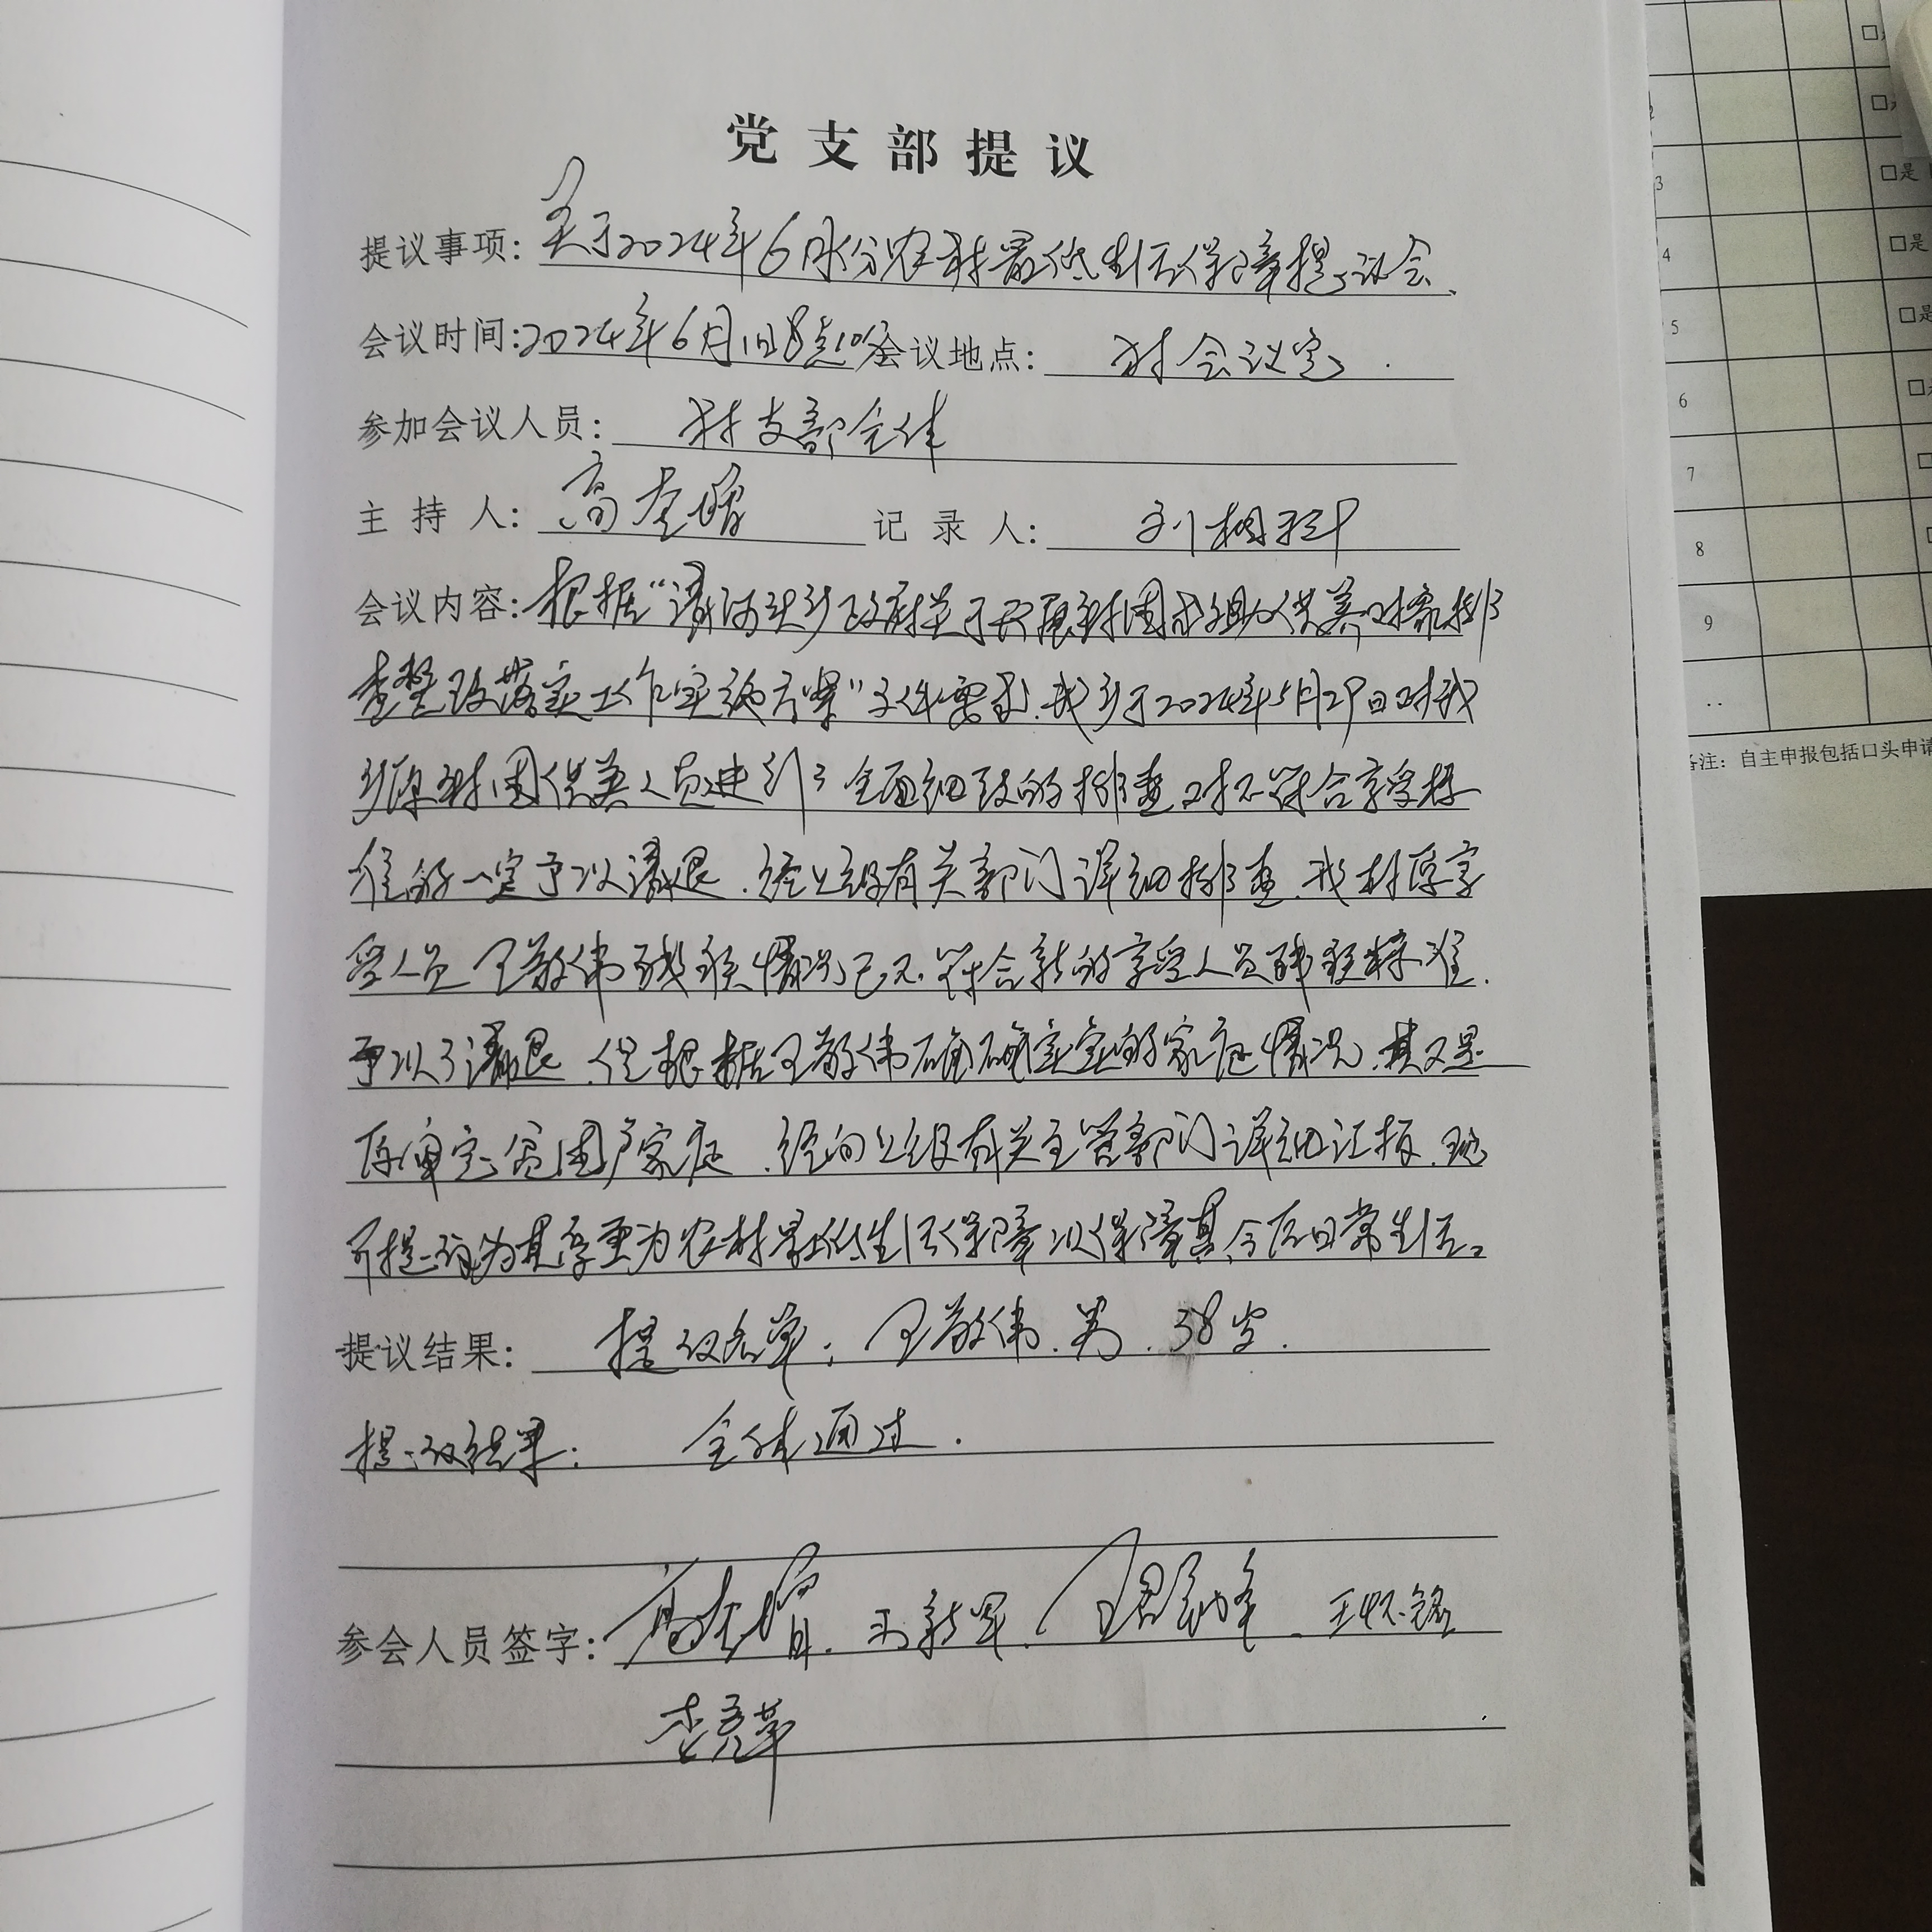 党支部提议
提议事项：关于2024年6月份农村最低生活保障提议会.
会议时间：2024年6月1日8点10分 会议地点： 村会议室.
参加会议人员： 村支部全体
主持人： 高 记录人： 刘相
会议内容：根据“清河头乡政府关于开展特困救助供养对象排
查整改落实工作实施方案”文件要求.我乡于2024年5月29日对我
乡原特困供养人员进行了全面细致的排查.对不符合享受标
准的一定予以清退.经上级有关部门详细排查.我村原享
受人员王敬伟残疾情况已不符合新的享受人员残疾标准.
予以了清退.但根据王敬伟确确实实的家庭情况.其又是
原审定贫困户家庭.经向上级有关主管部门详细汇报.现
可提议为其变更为农村最低生活保障以保障其今后日常生活。
提议结果： 提议名单：王敬伟.男.38岁.
提议结果： 全体通过.
参会人员签字： 高 . 新军. 王 峰. 王怀铭
李
3 □是
4 □是
5 □是
6
7
8
9
..
备注：自主申报包括口头申请